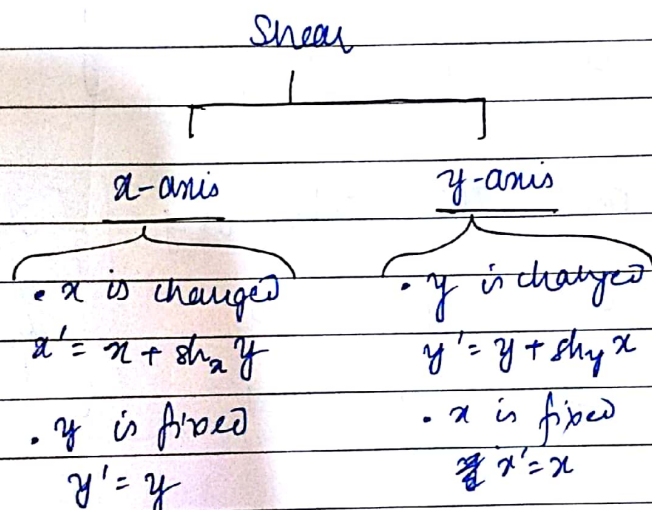 Shear
x-axis
• x is changed
x' = x + shₓ y
• y is fixed
y' = y
y-axis
• y is changed
y' = y + shᵧ x
• x is fixed
x' = x